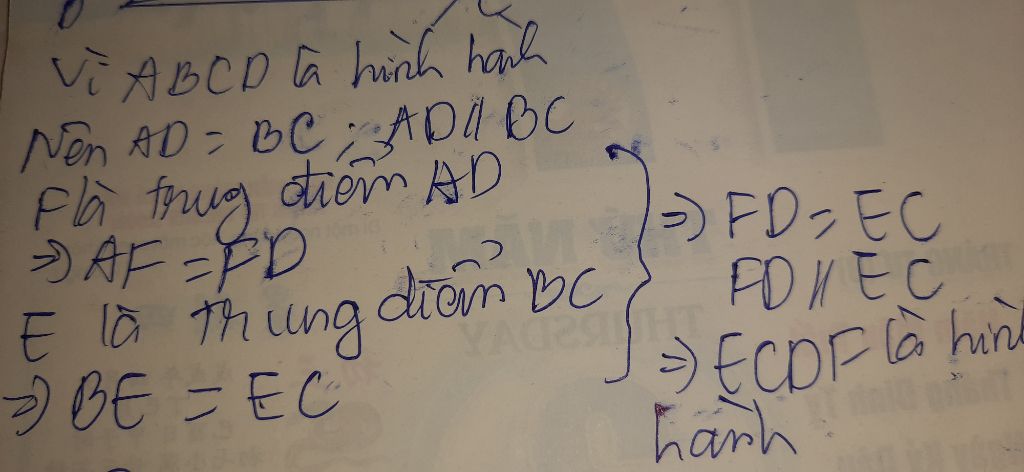 Vì ABCD là hình hành
Nên AD = BC ; AD // BC
F là trung điểm AD
=> AF = FD
E là trung điểm BC
=> BE = EC
=> FD = EC
FD // EC
=> ECDF là hình
hành
THURSDAY